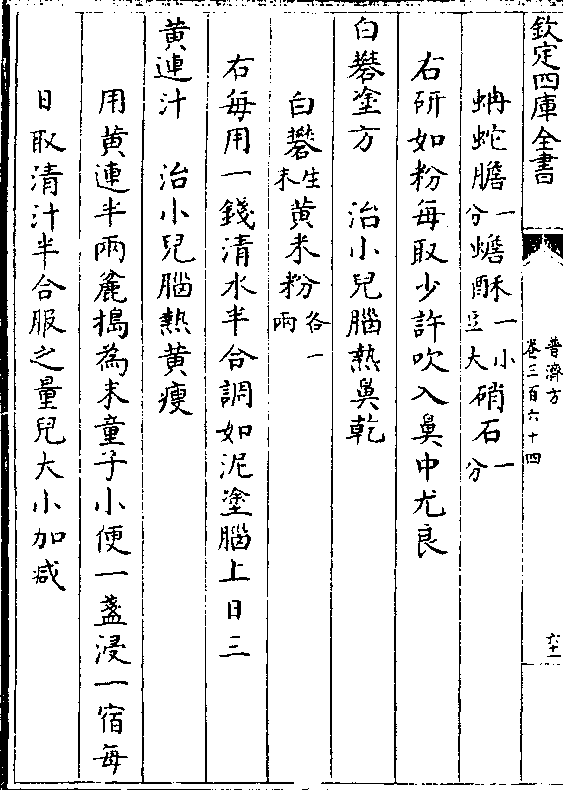 欽定四庫全書
普濟方
卷三百六十四
六十一
蚺蛇膽一分蟾酥一小豆大硝石一分
右研如粉每取少許吹入鼻中尤良
白礬塗方　治小兒腦熱鼻乾
白礬生末黄米粉各一兩
右每用一錢清水半合調如泥塗腦上日三
黄連汁　治小兒腦熱黄瘦
用黄連半兩麄搗為末童子小便一盞浸一宿每
日取清汁半合服之量兒大小加减